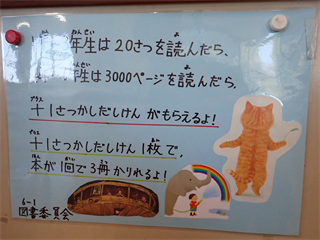 年生は20さつを読んだら、
年生は3000ページを読んだら、
十1さっかしだしけん がもらえるよ!
十1さっかしだしけん 1枚で、
本が1回で3冊かりれるよ!
図書委員会